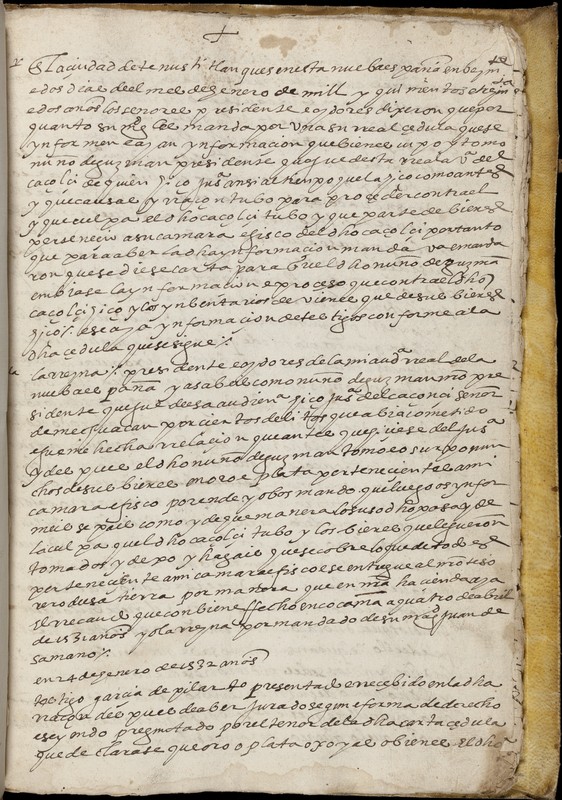 En la ciudad de tenustitlan questa nueba españa en beynte
e dos dias del mes de henero de mill y quinientos e treynta
e dos años los señores presidente e oydores dixeron que por
quanto su mag manda por una su real cedula que se
ynformen e ayan ynformacion que bienes uvo y tomo
nuño de guzman presidente que fue desta rreal aª del
caçolçi de quien hizo justª ansi al tienpo que la hizo como antes
y que causas y rrazon tubo para proceder contra el
y que culpa el dho caçolçi tubo y que parte de bienes
pertenecio a su camara e fisco del dho caçolçi por tanto
que para aber la dha ynformacion mandava e manda
ron que se diese carta para quel dho nuño de guzman
enbiase la ynformacion e proceso que contra el dho
caçolçi hizo y los ynbentarios de bienes que de sus bienes
hizo e se aya ynformacion de testigos conforme a la
dha cedula que se sigue
la rreyna presidente e oydores de la mi audª real de la
nueba españa ya sabeis como nuño de guzman nro pre
sidente que fue desa audienª hizo justª del caçonci señor
de mechuacan por ciertos delitos que abia cometido
e sume hecha rrelacion que antes que hiziese del justª
y despues el dho nuño de guzman tomo e su poder mu
chos de sus bienes en oro e plata pertenecientes a mi
camara e fisco por ende yo vos mando que luego os ynfor
meis e sepais como y de que manera lo susodho pasa y de
la culpa quel dho caçolçi tubo y los bienes que le fueron
tomados y de po y hagais que se cobre lo que de todo es
perteneciente a mi camara e fisco e se entregue al nro teso
rero desa tierra por manera que en nra hazienda aya
el rrecaudo que conbiene fecho en ocaña a quatro de abril
de 1531 años yo la rreyna por mandado de su magd Juan de
samano
en 24 de henero de 1532 años
testigo garcia de pilar tº presentado e rrecebido en la dha
rrazon despues de aber jurado segun forma de derecho
e seyendo preguntado por el tenor de la dha carta cedula
que declarase que oro o plata o joyas o bienes el dho